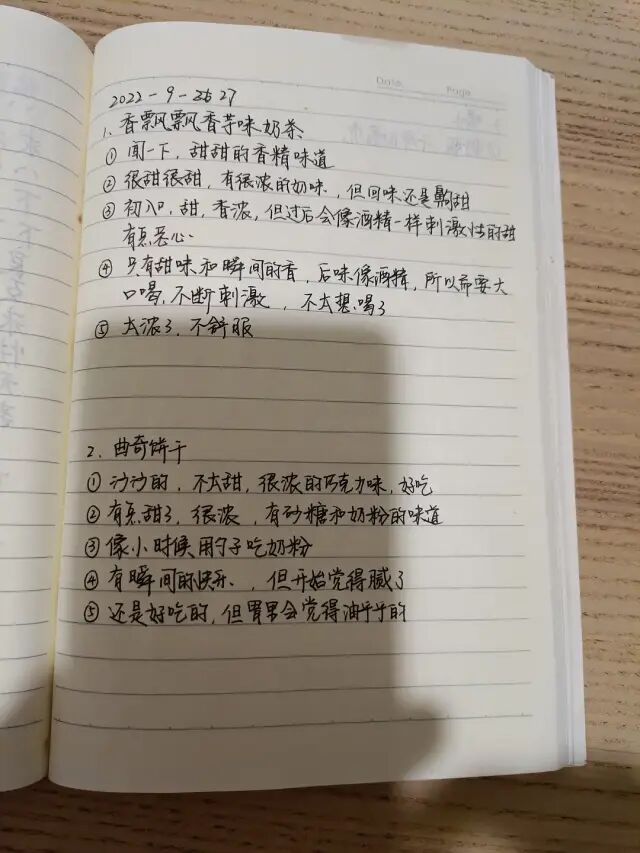 Date. Page
2022-9-26 27
1、香飘飘香芋味奶茶
① 闻一下，甜甜的香精味道
② 很甜很甜，有很浓的奶味，但回味还是齁甜
③ 初入口，甜，香浓，但过后会像酒精一样刺激性的甜
有点恶心.
④ 只有甜味和瞬间的香，后味像酒精，所以需要大
口喝，不断刺激，不太想喝了
⑤ 太浓了，不舒服
2、曲奇饼干
① 沙沙的，不太甜，很浓的巧克力味，好吃
② 有点甜了，很浓，有砂糖和奶粉的味道
③ 像小时候用勺子吃奶粉
④ 有瞬间的快乐，但开始觉得腻了
⑤ 还是好吃的，但胃里会觉得油乎乎的